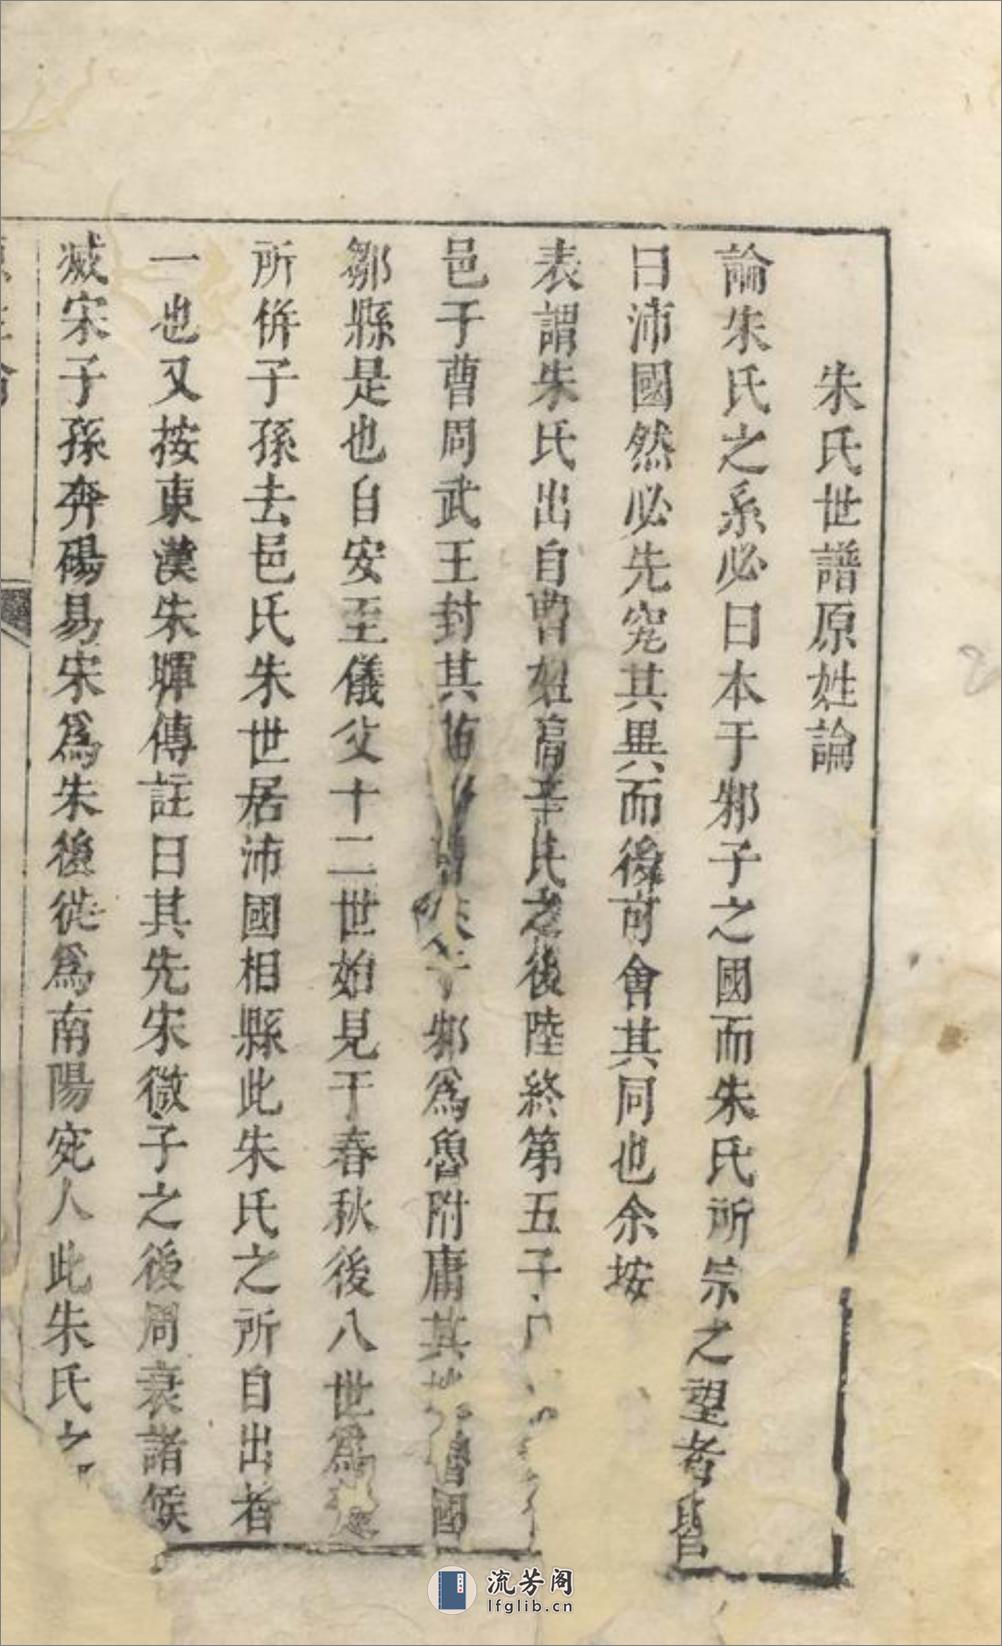 朱氏世譜原姓論
論朱氏之系必曰本于邾子之國而朱氏所宗之望者皆
曰沛國然必先究其異而後可會其同也余按
表謂朱氏出自曹姓高辛氏之後陸終第五子
邑于曹周武王封其苗 于邾為魯附庸其 國
鄒縣是也自安至儀父十二世始見于春秋後八世為楚
所併子孫去邑氏朱世居沛國相縣此朱氏之所自出者
一也又按東漢朱暉傳註曰其先宋微子之後周衰諸侯
滅宋子孫奔碭易宋為朱後徙為南陽宛人此朱氏之
流芳阁
lfglib.cn